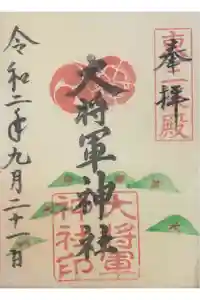 奉拝
大将軍神社
大将軍
神社印
令和二年九月二十一日